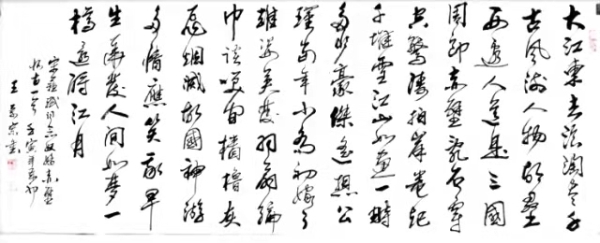 大江東去浪淘盡千
古風流人物故壘
西邊人道是三國
周郎赤壁亂石穿
空驚濤拍岸卷起
千堆雪江山如畫一時
多少豪傑遙想公
瑾當年小喬初嫁了
雄姿英發羽扇綸
巾談笑間檣櫓灰
飛烟滅故國神游
多情應笑我早
生華髮人間如夢一
樽還酹江月
宋蘇軾詞念奴嬌赤壁
懷古一首壬寅年初
王宗書